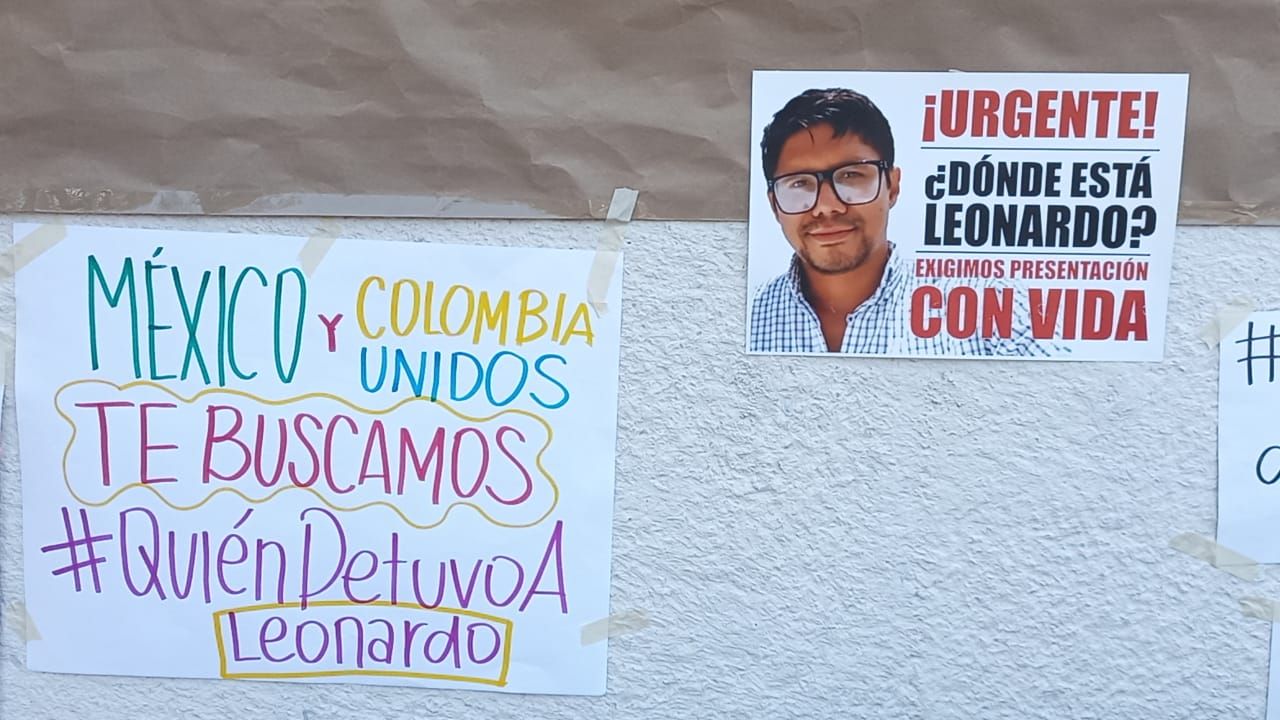 MÉXICO Y COLOMBIA
UNIDOS
TE BUSCAMOS
#QuiénDetuvoA
Leonardo
¡URGENTE!
¿DÓNDE ESTÁ
LEONARDO?
EXIGIMOS PRESENTACIÓN
CON VIDA
#